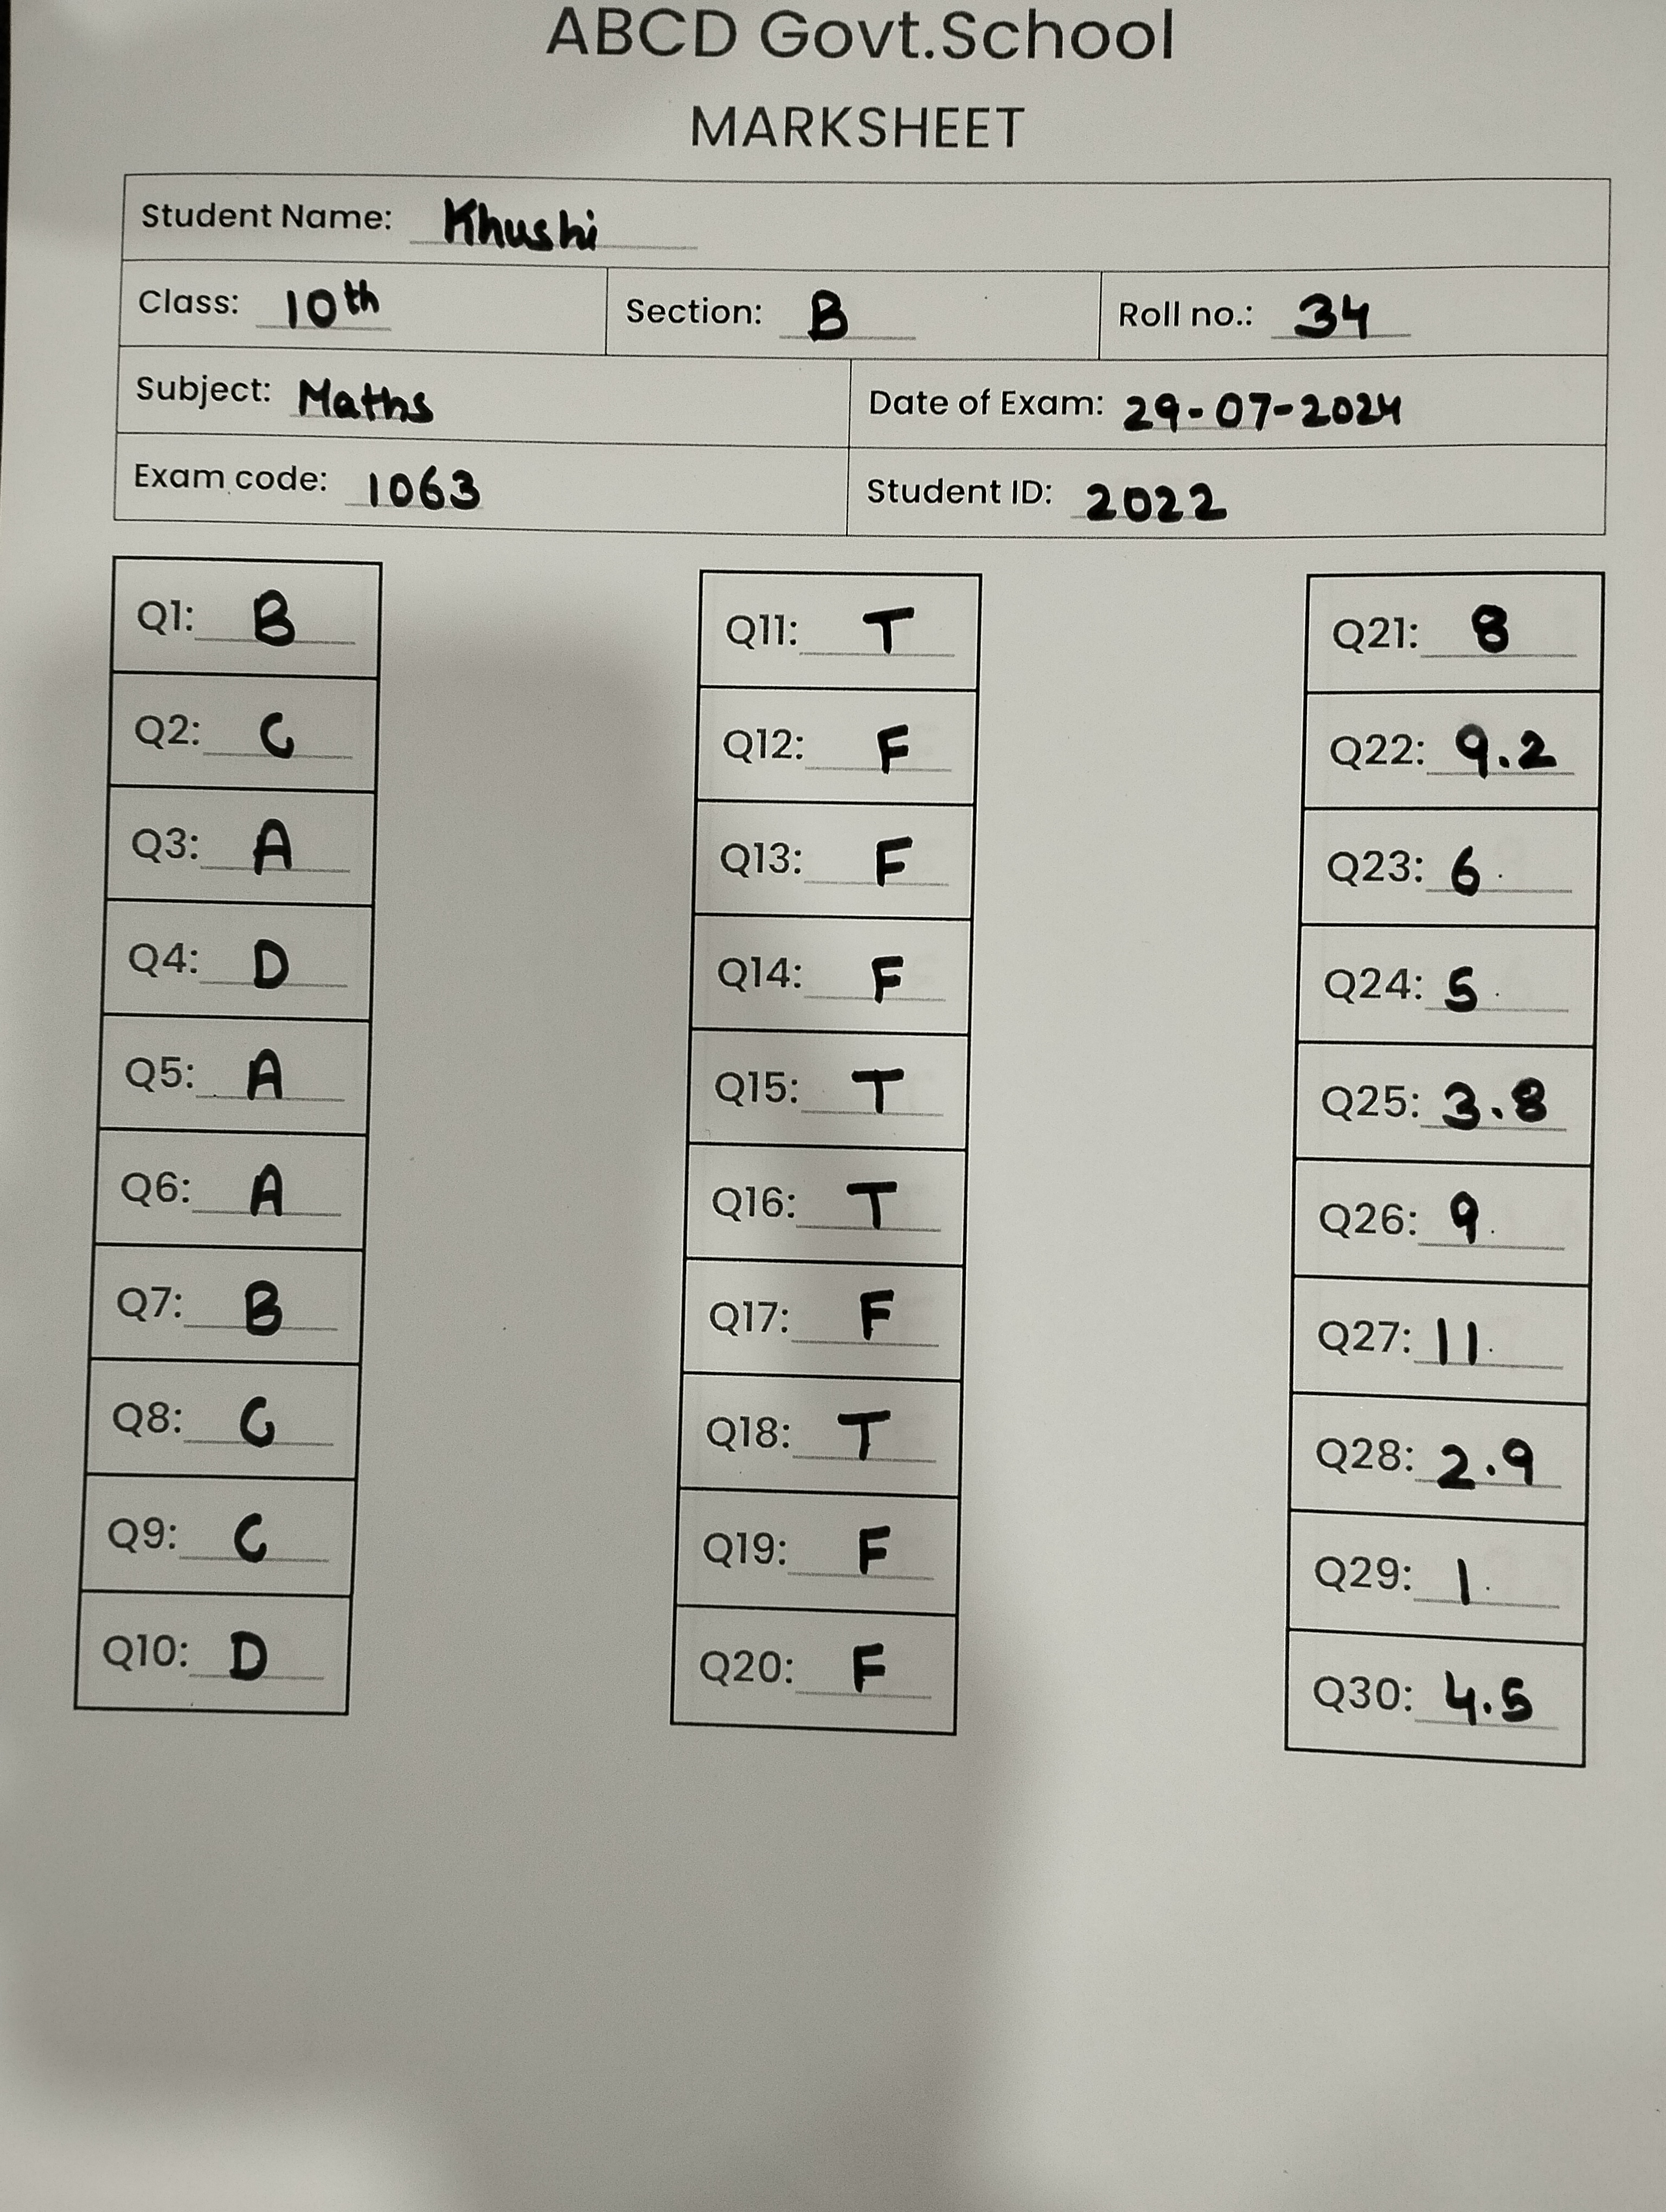 ABCD Govt.School
MARKSHEET
Student Name: Khushi
Class: 10th Section: B Roll no.: 34
Subject: Maths Date of Exam: 29-07-2024
Exam code: 1063 Student ID: 2022
Q1: B
Q2: C
Q3: A
Q4: D
Q5: A
Q6: A
Q7: B
Q8: C
Q9: C
Q10: D
Q11: T
Q12: F
Q13: F
Q14: F
Q15: T
Q16: T
Q17: F
Q18: T
Q19: F
Q20: F
Q21: 8
Q22: 9.2
Q23: 6
Q24: 5
Q25: 3.8
Q26: 9
Q27: 11
Q28: 2.9
Q29: 1
Q30: 4.5